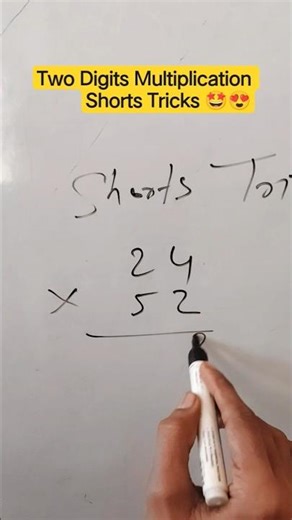 Two Digits Multiplication
Shorts Tricks 🤩😍
Shorts Tri
24
× 52
8